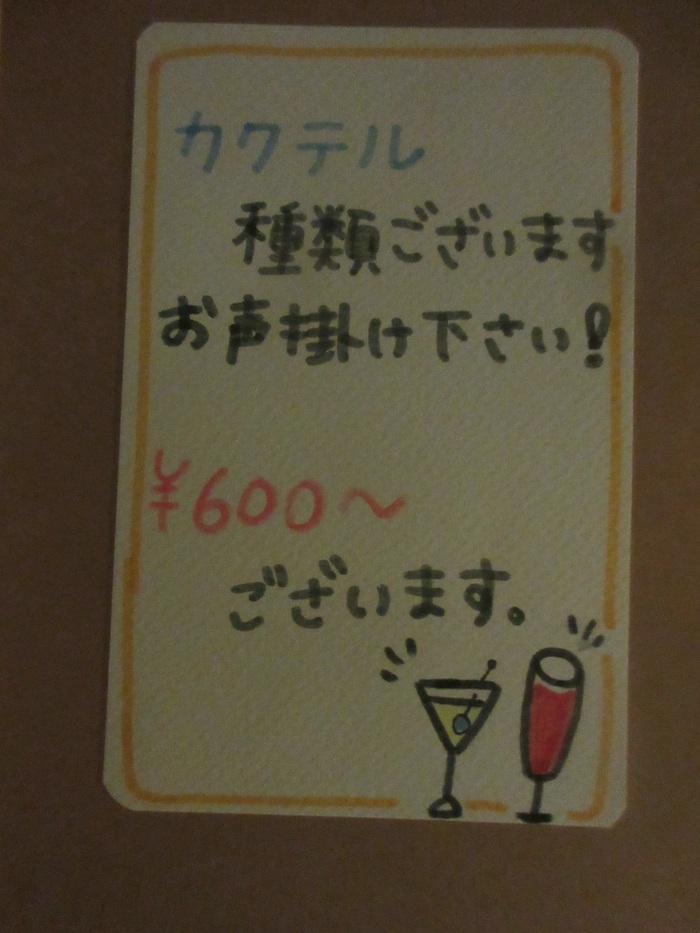 カクテル
種類ございます
お声掛け下さい!
¥600〜
ございます。